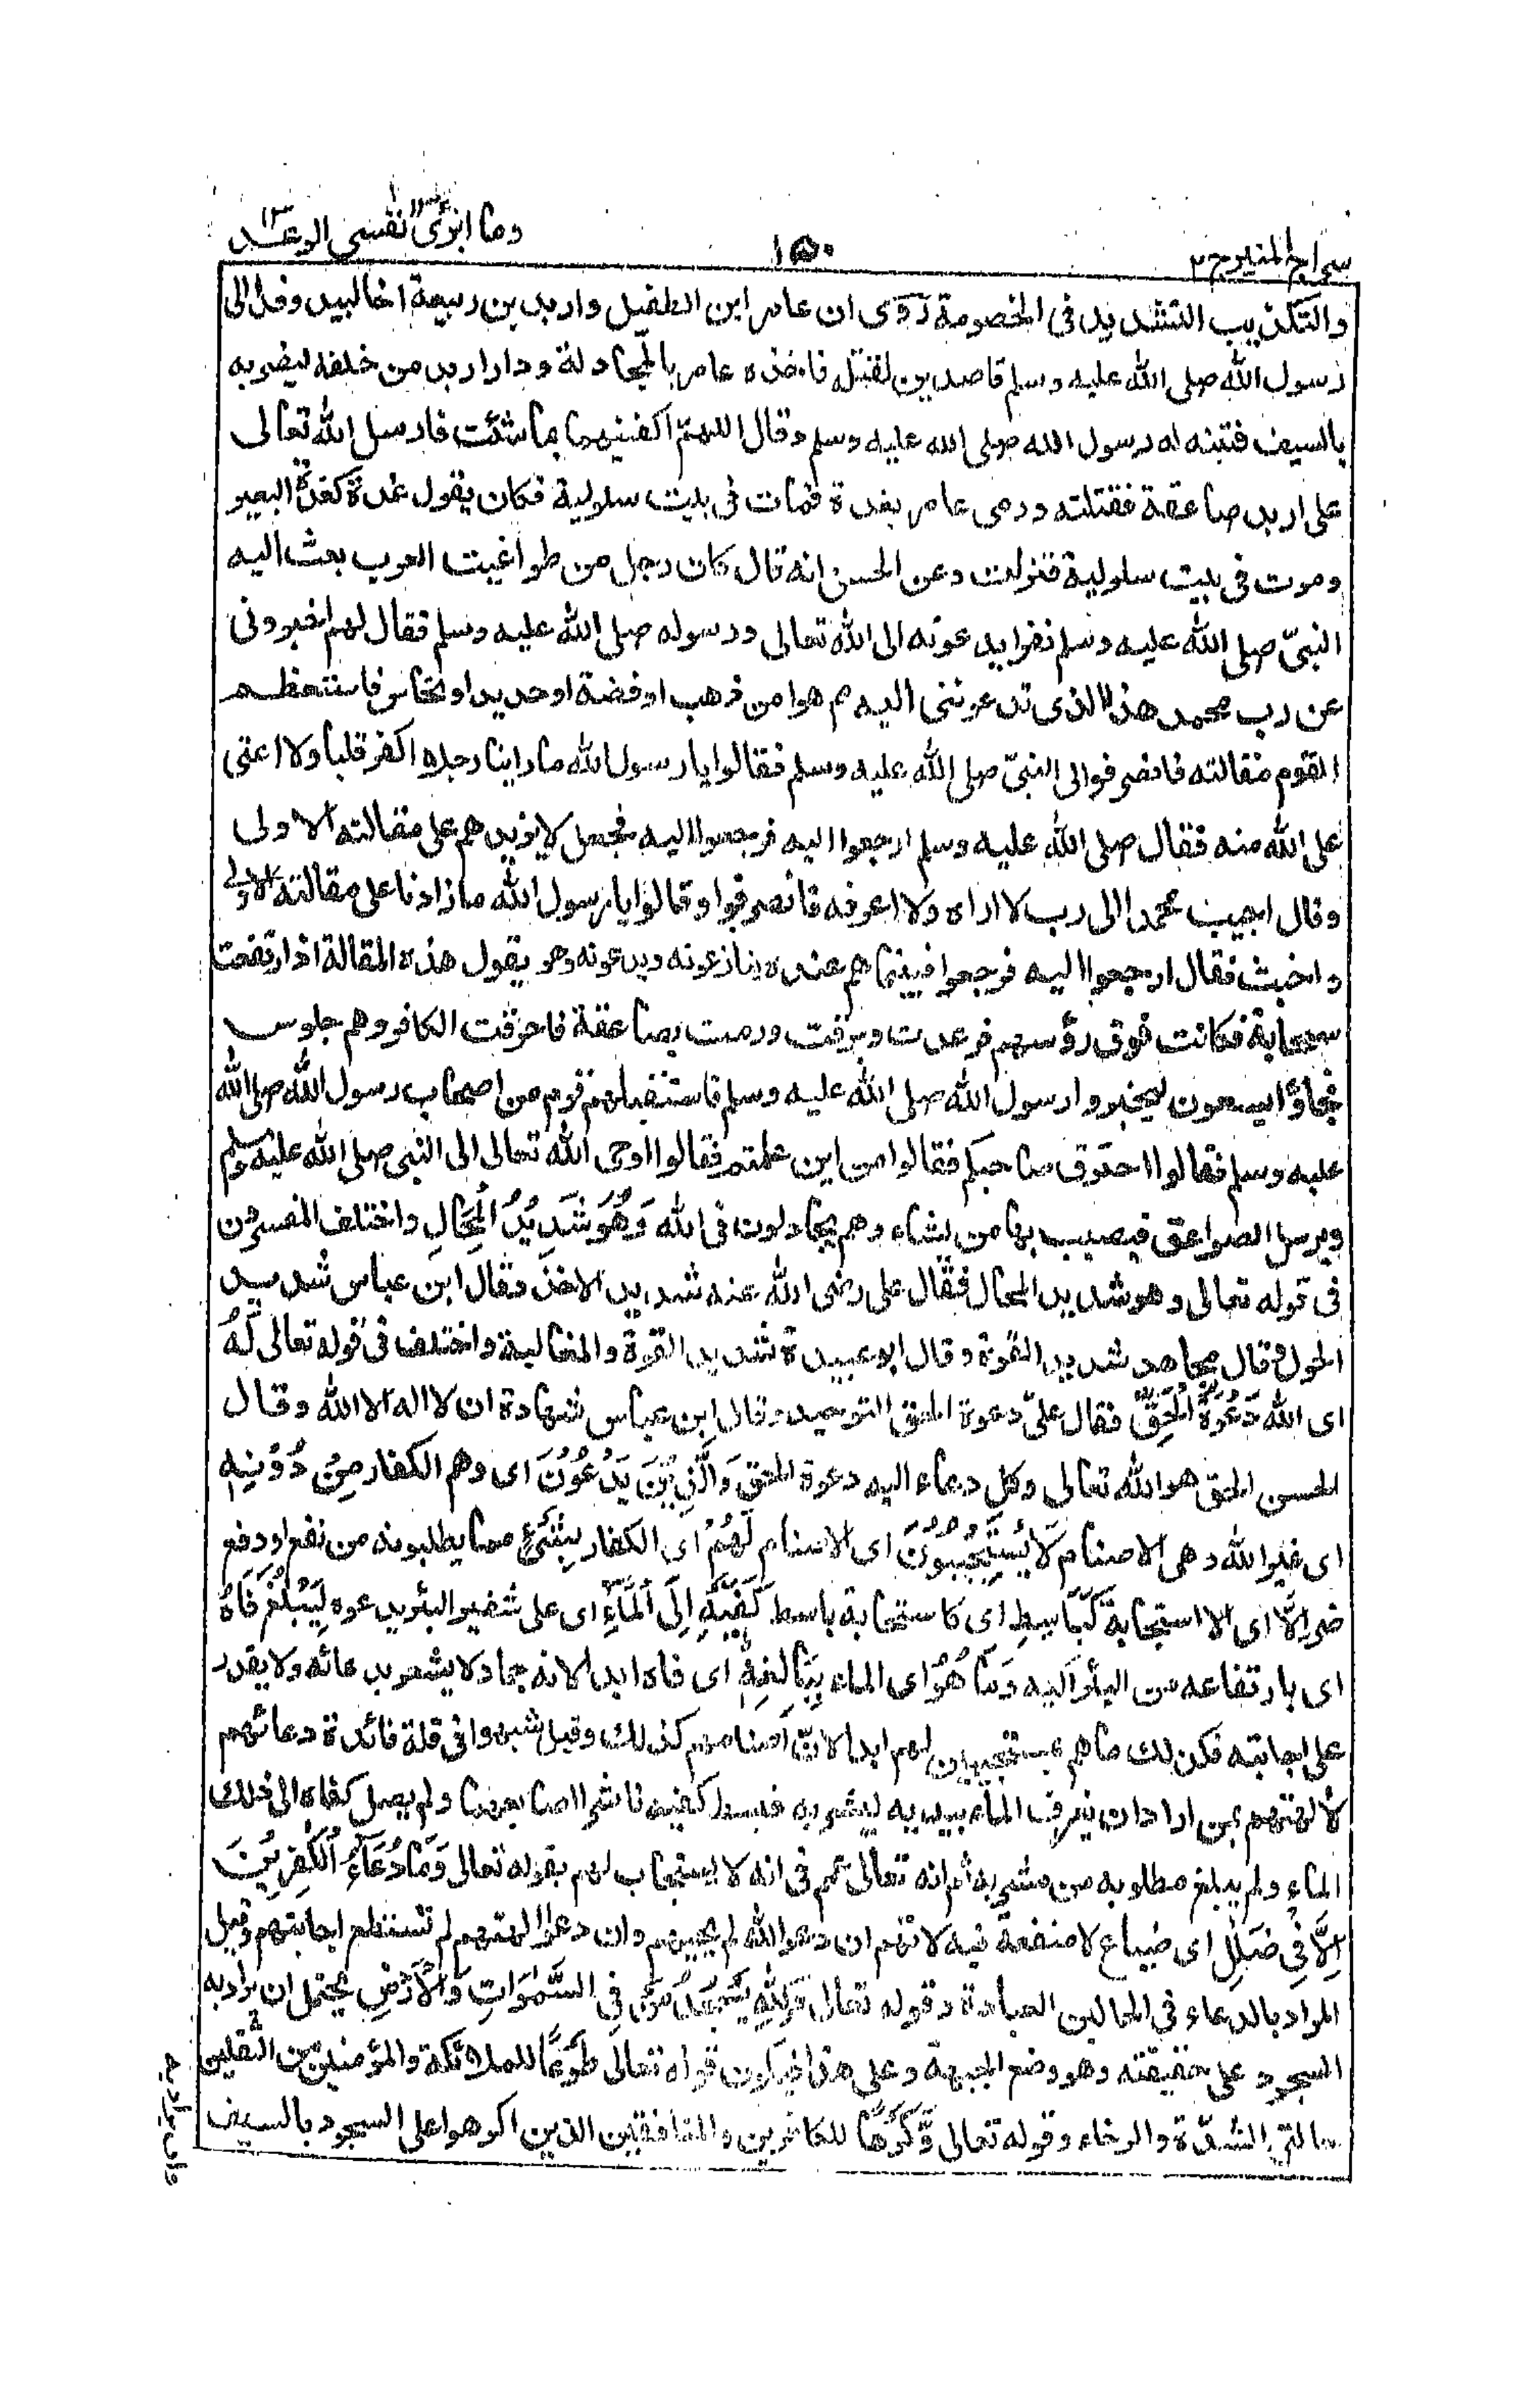 سراج المنير ج ٢
١٥٠
وما ابرئ نفسي الرعد ١٣
والتكذيب التشديد فى الخصومة روى ان عامر ابن الطفيل واربد بن ربيعة اخا لبيد وفدا الى
رسول الله صلى الله عليه وسلم قاصدين لقتله فاخذه عامر بالمجادلة ودار اربد من خلفه ليضربه
بالسيف فتنبه له رسول الله صلى الله عليه وسلم وقال اللهمّ اكفنيهما بما شئت فارسل الله تعالى
على اربد صاعقة فقتلته ورمى عامر بغدة فمات فى بيت سلولية فكان يقول غدة كغدة البعير
وموت فى بيت سلولية فنزلت وعن الحسن انه قال كان رجل من طواغيت العرب بعث اليه
النبىّ صلى الله عليه وسلم نفرا يدعونه الى الله تعالى ورسوله صلى الله عليه وسلم فقال لهم اخبرونى
عن رب محمد هذا الذى تدعوننى اليه مم هو امن ذهب او فضة او حديد او نحاس فاستعظم
القوم مقالته فانصرفوا الى النبىّ صلى الله عليه وسلم فقالوا يا رسول الله ما راينا رجلا اكفر قلبا ولا اعتى
على الله منه فقال صلى الله عليه وسلم ارجعوا اليه فرجعوا اليه فجعل لا يزيدهم على مقالته الاولى
وقال اجيب محمدا الى رب لا اراه ولا اعرفه فانصرفوا وقالوا يا رسول الله ما زادنا على مقالته الاولى
واخبث فقال ارجعوا اليه فرجعوا فبينما هم عنده ينازعونه ويدعونه وهو يقول هذه المقالة اذ ارتفعت
سحابة فكانت فوق رؤسهم فرعدت وبرقت ورمت بصاعقة فاحرقت الكافر وهم جلوس
فجاؤا يسعون ليخبروا رسول الله صلى الله عليه وسلم فاستقبلهم قوم من اصحاب رسول الله صلى الله
عليه وسلم فقالوا احترق صاحبكم فقالوا من اين علمتم فقالوا اوحى الله تعالى الى النبى صلى الله عليه وسلم
ويرسل الصواعق فيصيب بها من يشاء وهم يجادلون فى الله وَهُوَ شَدِيْدُ الْمِحَالِ واختلف المفسرون
فى قوله تعالى وهو شديد المحال فقال على رضى الله عنه شديد الاخذ وقال ابن عباس شديد
الحول وقال مجاهد شديد القوة وقال ابو عبيدة شديد القوة والمغالبة واختلف فى قوله تعالى لَهٗ
اى الله دَعْوَةُ الْحَقِّ فقال علىّ دعوة الحق التوحيد وقال ابن عباس شهادة ان لا اله الا الله وقال
الحسن الحق هو الله تعالى وكل دعاء اليه دعوة الحق وَالَّذِيْنَ يَدْعُوْنَ اى وهم الكفار مِنْ دُوْنِهٖ
اى غير الله وهى الاصنام لَا يَسْتَجِيْبُوْنَ اى الاصنام لَهُمْ اى الكفار بِشَىْءٍ مما يطلبونه من نفع او دفع
ضر اِلَّا اى الا استجابة كَبَاسِطِ اى كاستجابة باسط كَفَّيْهِ اِلَى الْمَآءِ اى على شفير البئر يدعوه لِيَبْلُغَ فَاهُ
اى بارتفاعه من البئر اليه وَمَا هُوَ اى الماء بِبَالِغِهٖ اى فاه ابدا لانه جماد لا يشعر بدعائه ولا يقدر
على اجابته فكذلك ما هم بمستجيبين لهم ابدا لانّ اصنامهم كذلك وقيل شبهوا فى قلة فائدة دعائهم
لآلهتهم بمن اراد ان يغرف الماء بيديه ليشربه فبسط كفيه ناشرا اصابعهما ولم يصل كفاه الى ذلك
الماء ولم يبلغ مطلوبه من شربه ثم انه تعالى عمم فى انه لا يستجاب لهم بقوله تعالى وَمَا دُعَآءُ الْكٰفِرِيْنَ
اِلَّا فِىْ ضَلٰلٍ اى ضياع لا منفعة فيه لانهم ان دعوا الله لم يجبهم وان دعوا آلهتهم لم تستطع اجابتهم وقيل
المراد بالدعاء فى الحالين العبادة وقوله تعالى وَلِلّٰهِ يَسْجُدُ مَنْ فِى السَّمٰوٰتِ وَالْاَرْضِ يحتمل ان يراد به
السجود على حقيقته وهو وضع الجبهة وعلى هذا فيكون قوله تعالى طَوْعًا للملائكة والمؤمنين من الثقلين
حالتى الشدّة والرخاء وقوله تعالى وَّكَرْهًا للكافرين والمنافقين الذين اكرهوا على السجود بالسيف
وان يراد به